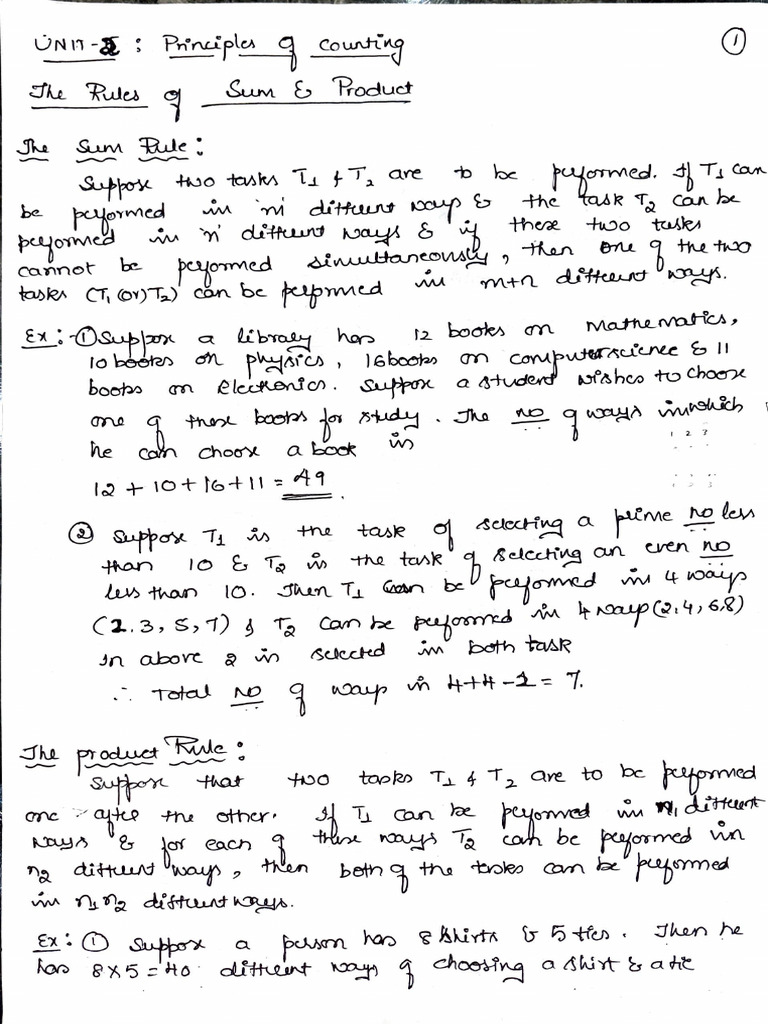 UNIT-2 : Principles of counting
①
The Rules of Sum & Product
The Sum Rule:
Suppose two tasks T1 & T2 are to be performed. If T1 can
be performed in 'm' different ways & the task T2 can be
performed in 'n' different ways & if these two tasks
cannot be performed simultaneously, then one of the two
tasks (T1 (or) T2) can be performed in m+n different ways.
Ex:- ① Suppose a library has 12 books on Mathematics,
10 books on physics, 16 books on computer science & 11
books on Electronics. Suppose a student wishes to choose
one of these books for study. The no of ways in which
he can choose a book is
12 + 10 + 16 + 11 = 49.
② Suppose T1 is the task of selecting a prime no less
than 10 & T2 is the task of selecting an even no
less than 10. Then T1 can be performed in 4 ways
(2, 3, 5, 7) & T2 can be performed in 4 ways (2, 4, 6, 8)
In above 2 is selected in both task
∴ Total no of ways is 4+4-1 = 7.
The product Rule:
Suppose that two tasks T1 & T2 are to be performed
one after the other. If T1 can be performed in n1 different
ways & for each of these ways T2 can be performed in
n2 different ways, then both of the tasks can be performed
in n1 n2 different ways.
Ex: ① Suppose a person has 8 shirts & 5 ties. Then he
has 8 x 5 = 40 different ways of choosing a shirt & a tie